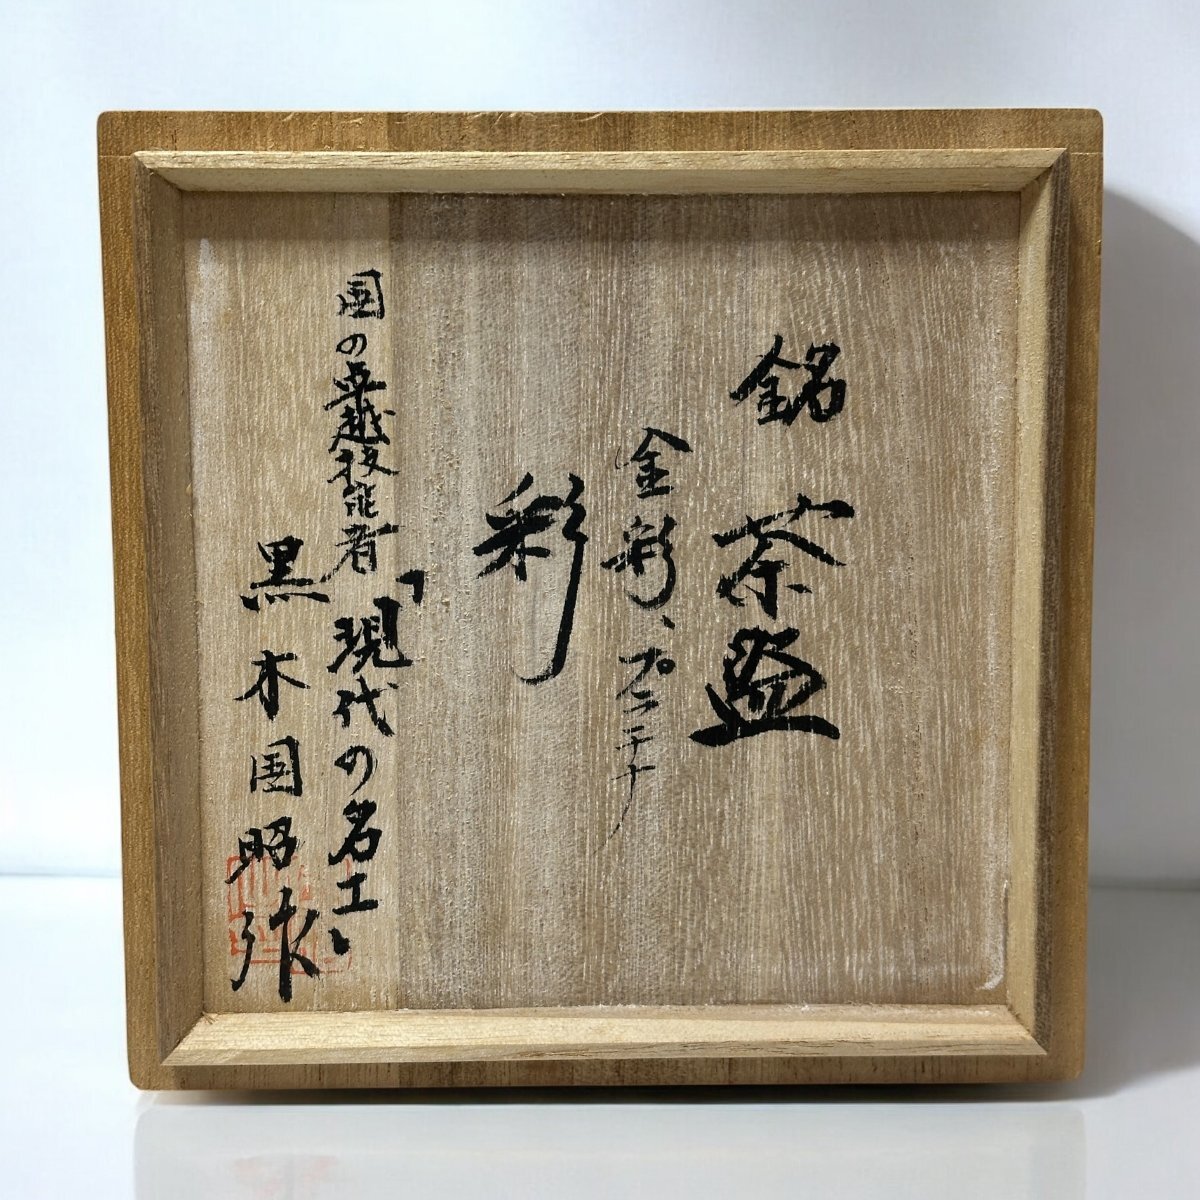 銘 茶盌
金彩、プラチナ
彩
国の卓越技能者「現代の名工」
黒木国昭作